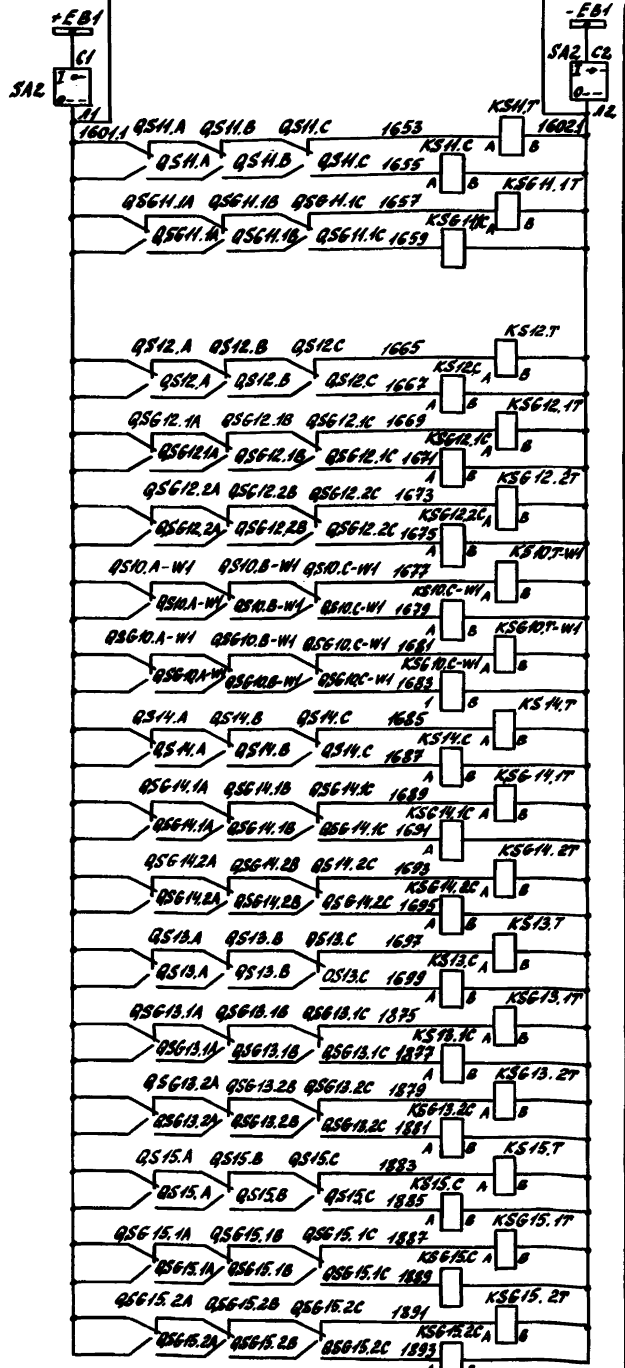 +EB1 -EB1
C1 SA2 C2
SA2 I I
0-- 0--
A1 A2
1601.1 QS11.A QS11.B QS11.C 1653 KS11.T 1602.1
A B
QS11.A QS11.B QS11.C 1655 KS11.C
A B
QSG11.1A QSG11.1B QSG11.1C 1657 KSG11.1T
A B
QSG11.1A QSG11.1B QSG11.1C 1659
QS12.A QS12.B QS12.C 1665 KS12.T
A B
QS12.A QS12.B QS12.C 1667 KS12.C
A B
QSG12.1A QSG12.1B QSG12.1C 1669 KSG12.1T
A B
QSG12.1A QSG12.1B QSG12.1C 1671 KSG12.1C
A B
QSG12.2A QSG12.2B QSG12.2C 1673 KSG12.2T
A B
QSG12.2A QSG12.2B QSG12.2C 1675 KSG12.2C
A B
QS10.A-W1 QS10.B-W1 QS10.C-W1 1677 KS10.T-W1
A B
QS10.A-W1 QS10.B-W1 QS10.C-W1 1679 KS10.C-W1
A B
QSG10.A-W1 QSG10.B-W1 QSG10.C-W1 1681 KSG10.T-W1
A B
QSG10.A-W1 QSG10.B-W1 QSG10.C-W1 1683 KSG10.C-W1
1 B
QS14.A QS14.B QS14.C 1685 KS14.T
A B
QS14.A QS14.B QS14.C 1687 KS14.C
A B
QSG14.1A QSG14.1B QSG14.1C 1689 KSG14.1T
A B
QSG14.1A QSG14.1B QSG14.1C 1691 KSG14.1C
A
QSG14.2A QSG14.2B QS14.2C 1693 KSG14.2T
A B
QSG14.2A QSG14.2B QSG14.2C 1695 KSG14.2C
A B
QS13.A QS13.B QS13.C 1697 KS13.T
A B
QS13.A QS13.B QS13.C 1699 KS13.C
A B
QSG13.1A QSG13.1B QSG13.1C 1875 KSG13.1T
A B
QSG13.1A QSG13.1B QSG13.1C 1877 KS13.1C
A B
QSG13.2A QSG13.2B QSG13.2C 1879 KSG13.2T
A B
QSG13.2A QSG13.2B QSG13.2C 1881 KSG13.2C
A B
QS15.A QS15.B QS15.C 1883 KS15.T
A B
QS15.A QS15.B QS15.C 1885 KS15.C
A B
QSG15.1A QSG15.1B QSG15.1C 1887 KSG15.1T
A B
QSG15.1A QSG15.1B QSG15.1C 1889 KSG15.C
QSG15.2A QSG15.2B QSG15.2C 1891 KSG15.2T
A B
QSG15.2A QSG15.2B QSG15.2C 1893 KSG15.2C